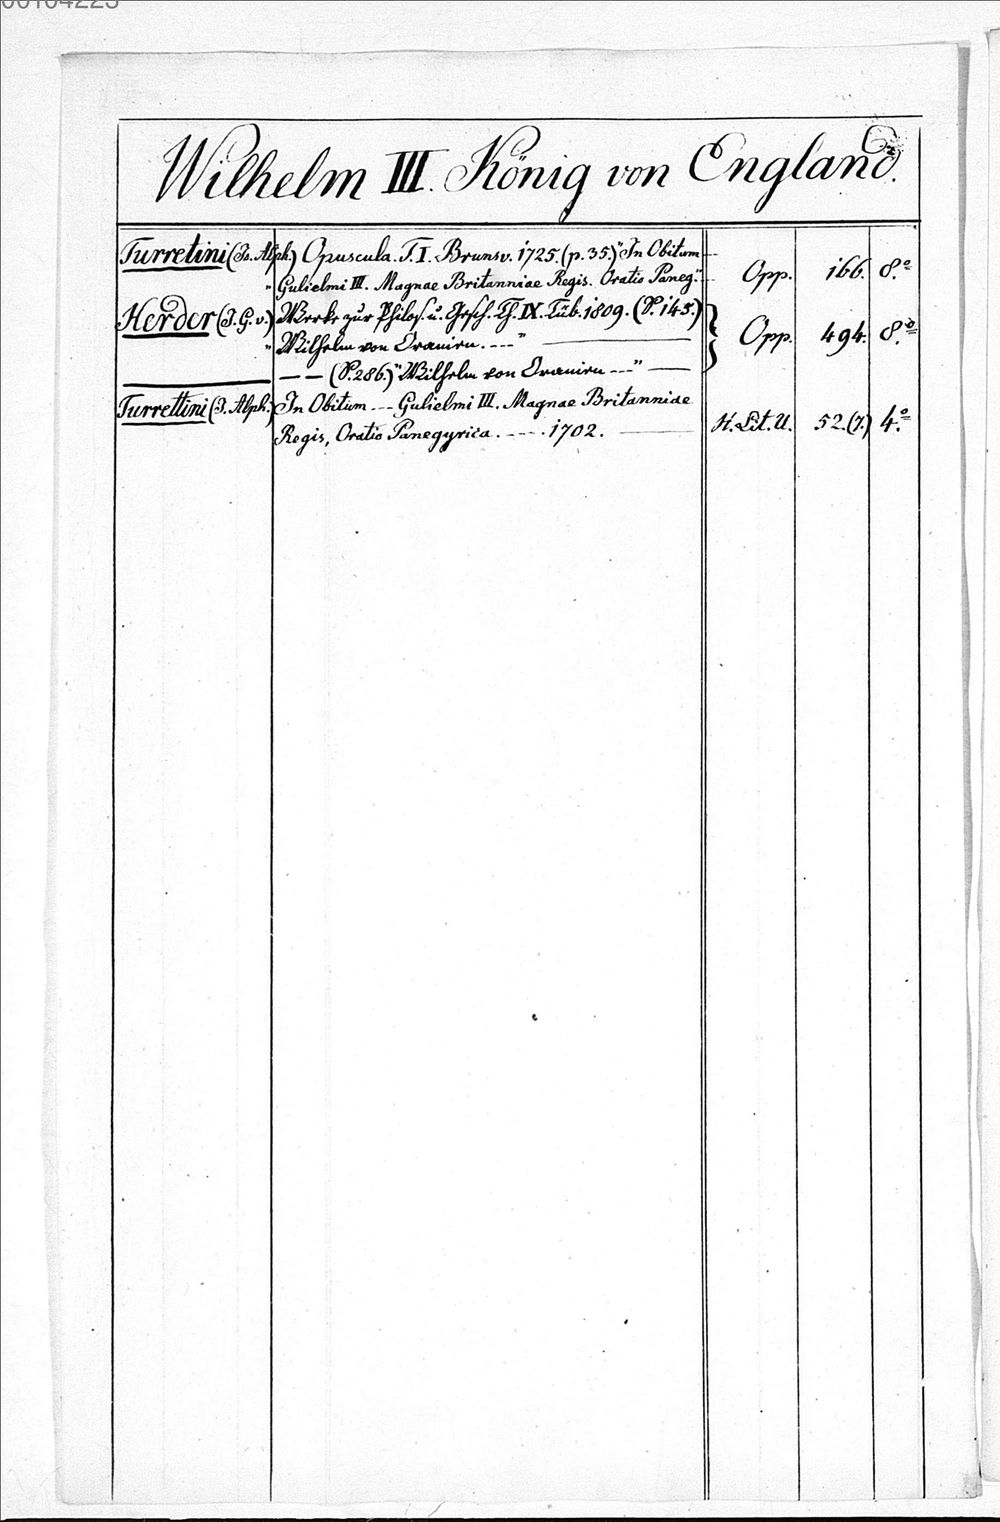 00104223
Wilhelm III. König von England.
Turretini (Jo. Alph.) Opuscula. T. I. Brunsv. 1725. (p. 35.) "In Obitum
" Gulielmi III. Magnae Britanniae Regis. Oratio Paneg." Opp. 166. 8.º
Herder (J. G. v.) Werke zur Philos. u. Gesch. Th. IX. Tüb. 1809. (S. 145.)
" Wilhelm von Oranien. --- " } Opp. 494. 8.º
— — (S. 286.) "Wilhelm von Oranien ---" —
Turrettini (J. Alph.) In Obitum --- Gulielmi III. Magnae Britanniae
Regis, Oratio Panegyrica. ---- 1702. H. Lit. U. 52. (7.) 4.º